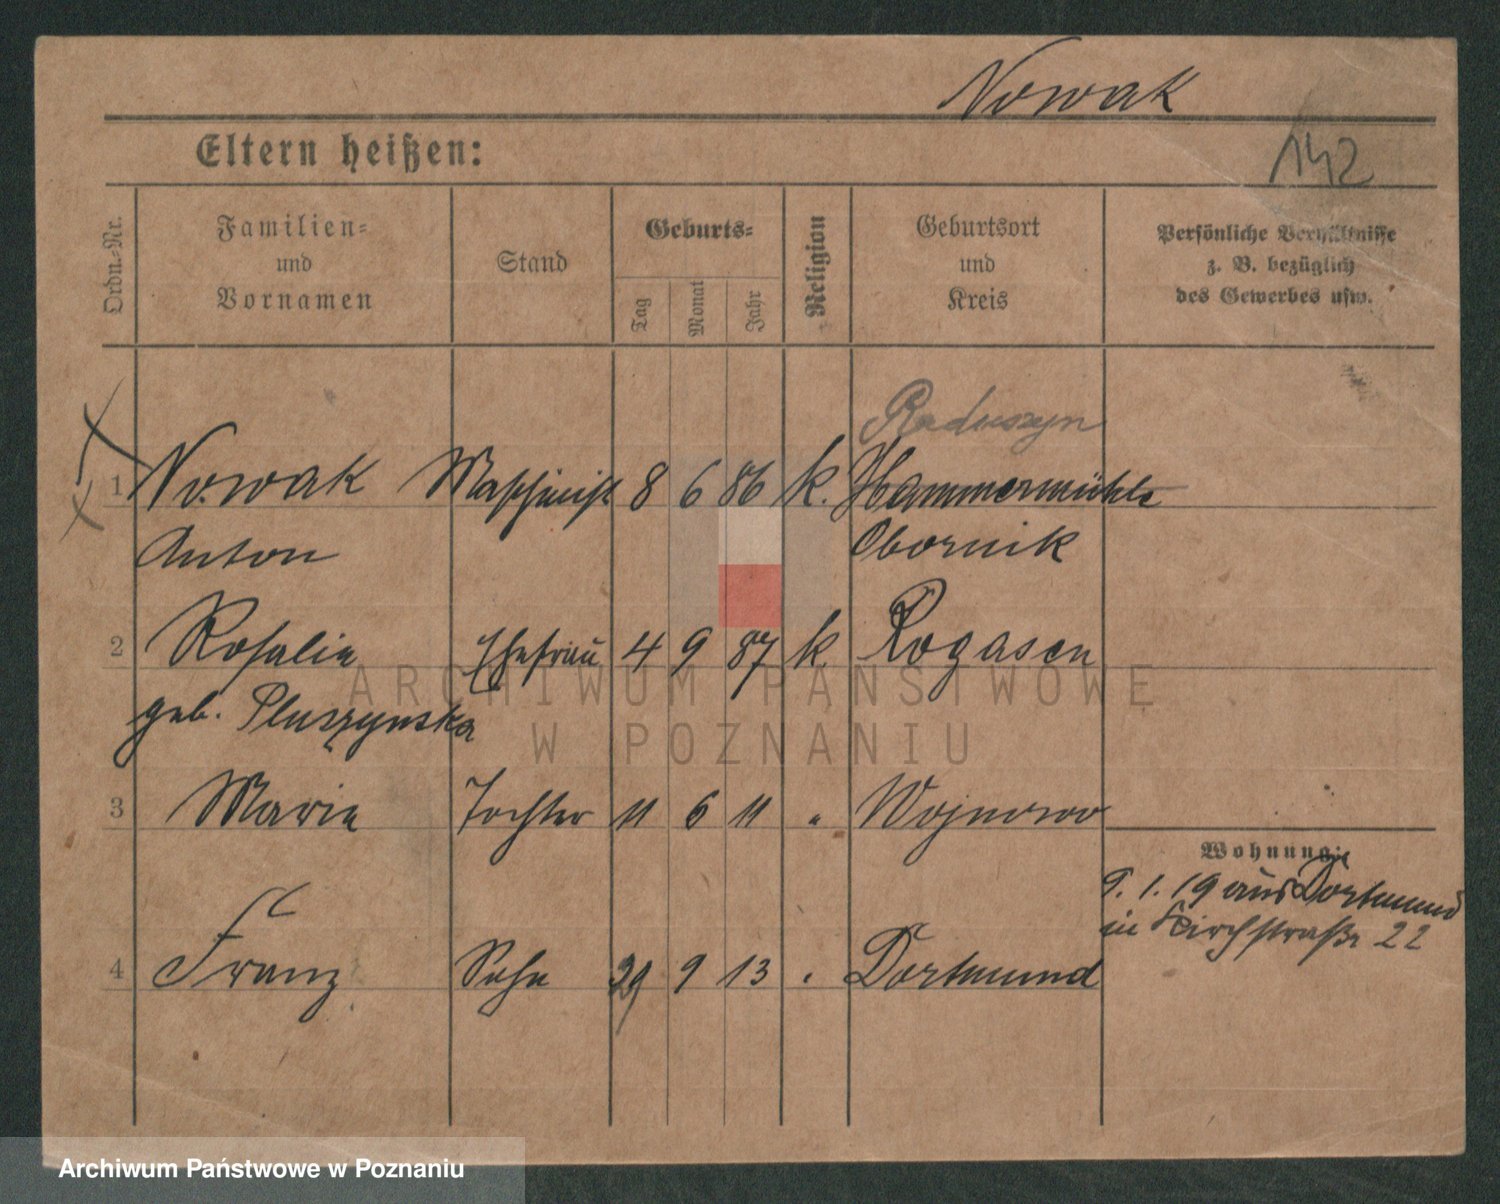 Nowak
142
Eltern heißen:
Ordn.-Nr.
Familien-
und
Vornamen
Stand
Geburts-
Tag
Monat
Jahr
Religion
Geburtsort
und
Kreis
Persönliche Verhältnisse
z. B. bezüglich
des Gewerbes usw.
Raduszyn
1 Nowak Maschinist 8 6 86 k. Hammermühle
Anton Obornik
2 Rosalie Ehefrau 4 9 87 k. Rogasen
geb. Pluszynska
3 Marie Tochter 11 6 11 " Wojnowo
Wohnung:
9. 1. 19 aus Dortmund
in Kirchstraße 22
4 Franz Sohn 29 9 13 " Dortmund
ARCHIWUM PAŃSTWOWE
W POZNANIU
Archiwum Państwowe w Poznaniu